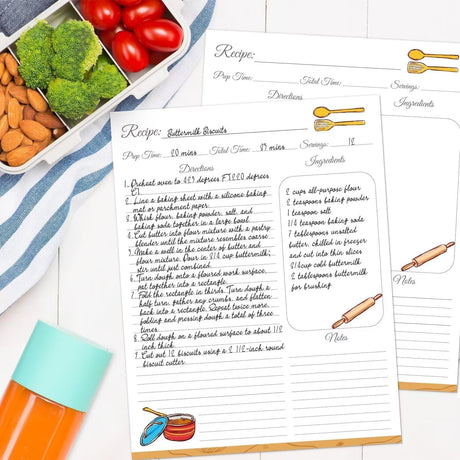 Recipe:
Prep Time: Total Time: Servings:
Directions Ingredients
Notes
Recipe: Buttermilk Biscuits
Prep Time: 20 mins Total Time: 35 mins Servings: 12
Directions
1. Preheat oven to 425 degrees F (220 degrees
C).
2. Line a baking sheet with a silicone baking
mat or parchment paper.
3. Whisk flour, baking powder, salt, and
baking soda together in a large bowl.
4. Cut butter into flour mixture with a pastry
blender until the mixture resembles coarse
5. Make a well in the center of butter and
flour mixture. Pour in 3/4 cup buttermilk;
stir until just combined.
6. Turn dough onto a floured work surface,
pat together into a rectangle.
7. Fold the rectangle in thirds. Turn dough a
half turn, gather any crumbs, and flatten
back into a rectangle. Repeat twice more,
folding and pressing dough a total of three
times.
8. Roll dough on a floured surface to about 1/2
inch thick.
9. Cut out 12 biscuits using a 2 1/2-inch round
biscuit cutter.
Ingredients
2 cups all-purpose flour
2 teaspoons baking powder
1 teaspoon salt
1/4 teaspoon baking soda
7 tablespoons unsalted
butter, chilled in freezer
and cut into thin slices
3/4 cup cold buttermilk
2 tablespoons buttermilk
for brushing
Notes